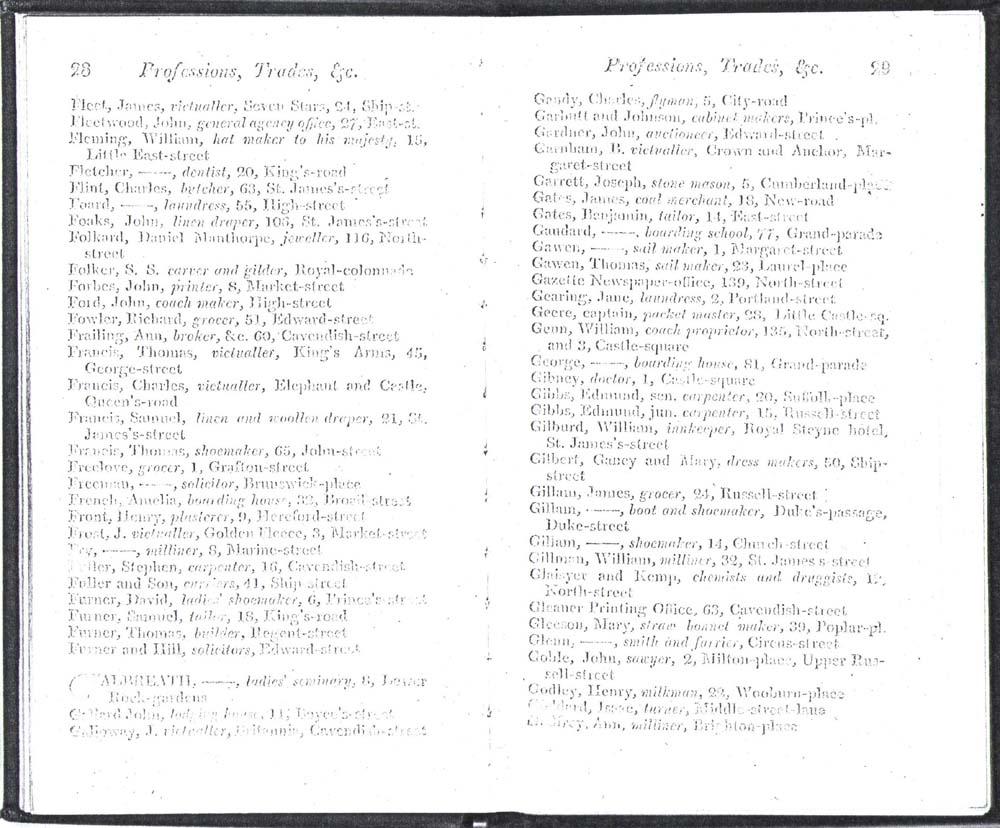 28 Professions, Trades, &c.
Fleet, James, victualler, Seven Stars, 24, Ship-st.
Fleetwood, John, general agency office, 27, East-st.
Fleming, William, hat maker to his majesty, 15,
Little East-street
Fletcher, ——, dentist, 20, King's-road
Flint, Charles, butcher, 63, St. James's-street
Foard, ——, laundress, 55, High-street
Foaks, John, linen draper, 103, St. James's-street
Folkard, Daniel Manthorpe, jeweller, 116, North-
street
Folker, S. S. carver and gilder, Royal-colonnade
Forbes, John, printer, 8, Market-street
Ford, John, coach maker, High-street
Fowler, Richard, grocer, 51, Edward-street
Frailing, Ann, broker, &c. 60, Cavendish-street
Francis, Thomas, victualler, King's Arms, 45,
George-street
Francis, Charles, victualler, Elephant and Castle,
Queen's-road
Francis, Samuel, linen and woollen draper, 21, St.
James's-street
Francis, Thomas, shoemaker, 65, John-street
Freelove, grocer, 1, Grafton-street
Freeman, ——, solicitor, Brunswick-place
French, Amelia, boarding house, 32, Broad-street
Front, Henry, plasterer, 9, Hereford-street
Frost, J. victualler, Golden Fleece, 3, Market-street
——, milliner, 8, Marine-street
Stephen, carpenter, 16, Cavendish-street
Fuller and Son, carriers, 41, Ship-street
Furner, David, ladies' shoemaker, 6, Prince's-street
Furner, Samuel, tailor, 18, King's-road
Furner, Thomas, builder, Regent-street
Furner and Hill, solicitors, Edward-street
GALBREATH, ——, ladies' seminary, 8, Lower
Rock-gardens
John, lodging house, 11, Boyce's-street
Galloway, J. victualler, Britannia, Cavendish-street
Professions, Trades, &c. 29
Gandy, Charles, flyman, 5, City-road
Garbutt and Johnson, cabinet makers, Prince's-pl.
Gardner, John, auctioneer, Edward-street
Garnham, B. victualler, Crown and Anchor, Mar-
garet-street
Garrett, Joseph, stone mason, 5, Cumberland-place
Gates, James, coal merchant, 18, New-road
Gates, Benjamin, tailor, 14, East-street
Gaudard, ——, boarding school, 77, Grand-parade
Gawen, ——, sail maker, 1, Margaret-street
Gawen, Thomas, sail maker, 23, Laurel-place
Gazette Newspaper-office, 139, North-street
Gearing, Jane, laundress, 2, Portland-street
Geere, captain, packet master, 28, Little Castle-sq.
Genn, William, coach proprietor, 135, North-street,
and 3, Castle-square
George, ——, boarding house, 81, Grand-parade
Gibney, doctor, 1, Castle-square
Gibbs, Edmund, sen. carpenter, 20, Suffolk-place
Gibbs, Edmund, jun. carpenter, 15, Russell-street
Gilburd, William, innkeeper, Royal Steyne hotel,
St. James's-street
Gilbert, Gancy and Mary, dress makers, 50, Ship-
street
Gillam, James, grocer, 24, Russell-street
Gillam, ——, boot and shoemaker, Duke's-passage,
Duke-street
Gillam, ——, shoemaker, 14, Church-street
Gillman, William, milliner, 32, St. James's-street
Glaisyer and Kemp, chemists and druggists,
North-street
Gleaner Printing Office, 63, Cavendish-street
Gleeson, Mary, straw bonnet maker, 39, Poplar-pl.
Glenn, ——, smith and farrier, Circus-street
Goble, John, sawyer, 2, Milton-place, Upper Rus-
sell-street
Godley, Henry, milkman, 22, Wooburn-place
Isaac, turner, Middle-street-lane
Ann, milliner, Brighton-place